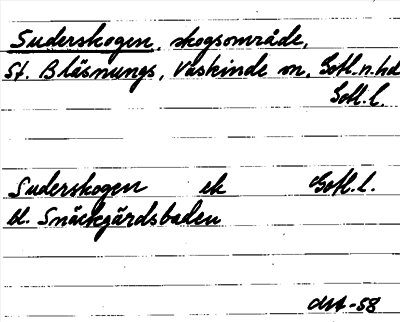 Suderskogen, skogsområde,
St. Bläsnungs, Väskinde sn, Gotl.n.hd
Gotl.l.
Suderskogen ek Gotl.l.
bl. Snäckgärdsbaden
-58